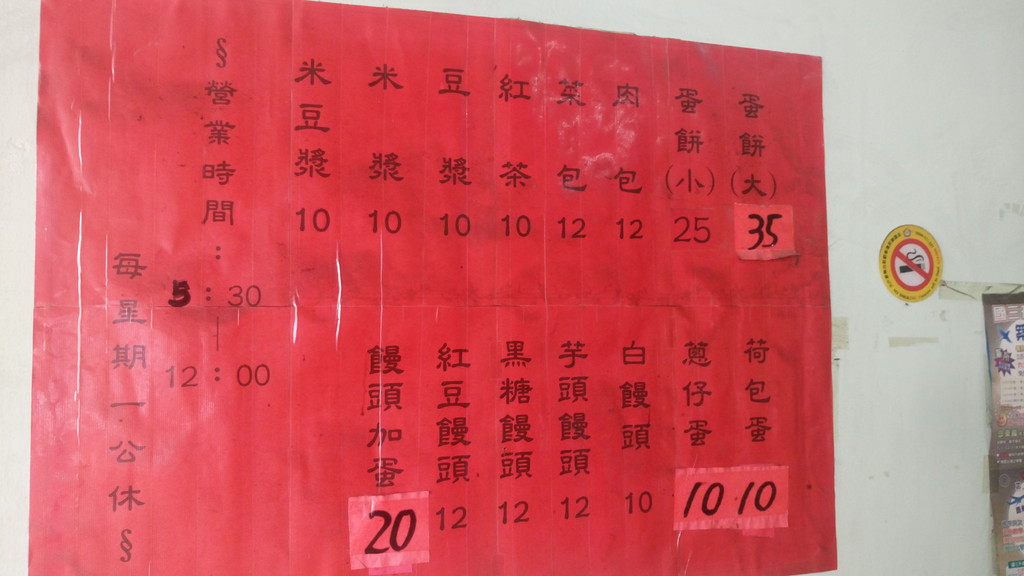 蛋餅(大) 35
蛋餅(小) 25
肉包 12
菜包 12
紅茶 10
豆漿 10
米漿 10
米豆漿 10
荷包蛋 10
蔥仔蛋 10
白饅頭 10
芋頭饅頭 12
黑糖饅頭 12
紅豆饅頭 12
饅頭加蛋 20
§營業時間:
5:30
|
12:00
每星期一公休§